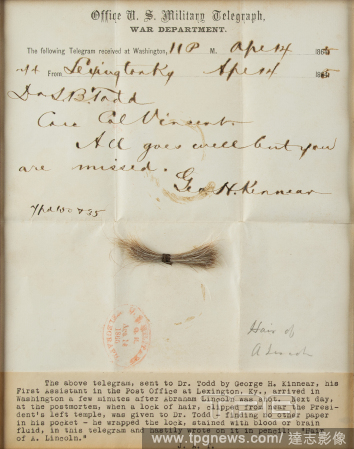 Office U. S. Military Telegraph,
WAR DEPARTMENT.
The following Telegram received at Washington, 11 P M. Apl 14 1865
From Lexington Ky Apl 14 1865
Dr L. B. Todd
Care Col Vincent.
All goes well but you
are missed.
Geo H. Kinnear
Hair of
A Lincoln
The above telegram, sent to Dr. Todd by George H. Kinnear, his
First Assistant in the Post Office at Lexington, Ky., arrived in
Washington a few minutes after Abraham Lincoln was shot. Next day,
at the postmortem, when a lock of hair, clipped from near the Presi-
dent's left temple, was given to Dr. Todd - finding no other paper
in his pocket - he wrapped the lock, stained with blood or brain
fluid, in this telegram and hastily wrote on it in pencil: "Hair
of A. Lincoln."
www.tpgnews.com/達志影像